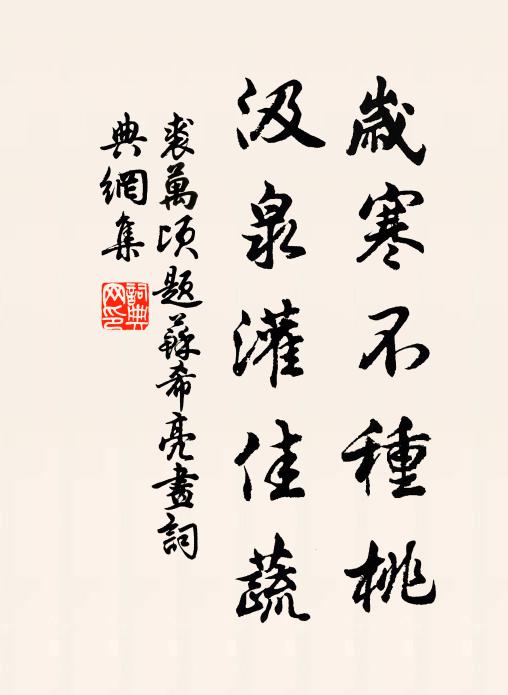 歲寒不種桃
汲泉灌佳蔬
裘萬頃題蘇希亮畫詞
典網集
詞典網印